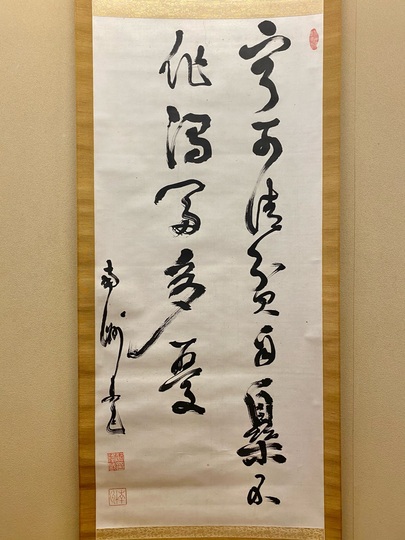 寧可清貧自樂不
作濁富多憂
南洲